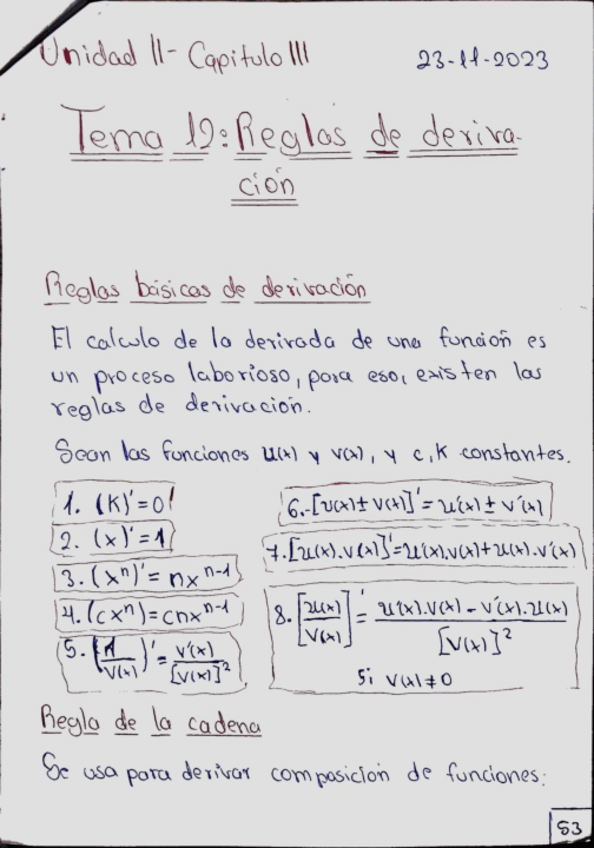 Unidad II - Capitulo III
23-11-2023
Tema 12: Reglas de deriva-
ción
Reglas básicas de derivación
El calculo de la derivada de una función es
un proceso laborioso, para eso, existen las
reglas de derivación.
Sean las funciones u(x) y v(x), y c, K constantes.
1. (K)' = 0
2. (x)' = 1
3. (xⁿ)' = nxⁿ⁻¹
4. (cxⁿ) = cnxⁿ⁻¹
5. (1/v(x))' = v'(x)/[v(x)]²
6.- [u(x) ± v(x)]' = u'(x) ± v'(x)
7. [u(x).v(x)]' = u'(x).v(x) + u(x).v'(x)
8. [u(x)/v(x)]' = u'(x).v(x) - v'(x).u(x)/[v(x)]²
Si v(x) ≠ 0
Regla de la cadena
Se usa para derivar composición de funciones:
53